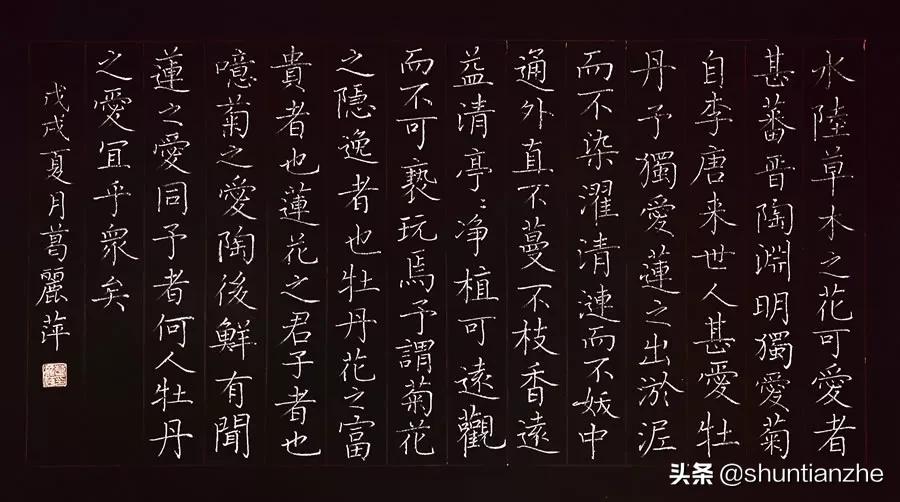 水陸草木之花可愛者
甚蕃晋陶淵明獨愛菊
自李唐来世人甚愛牡
丹予獨愛蓮之出淤泥
而不染濯清漣而不妖中
通外直不蔓不枝香遠
益清亭〻净植可遠觀
而不可褻玩焉予謂菊花
之隱逸者也牡丹花之富
貴者也蓮花之君子者也
噫菊之愛陶後鮮有聞
蓮之愛同予者何人牡丹
之愛宜乎衆矣
戊戌夏月葛麗萍
头条 @shuntianzhe